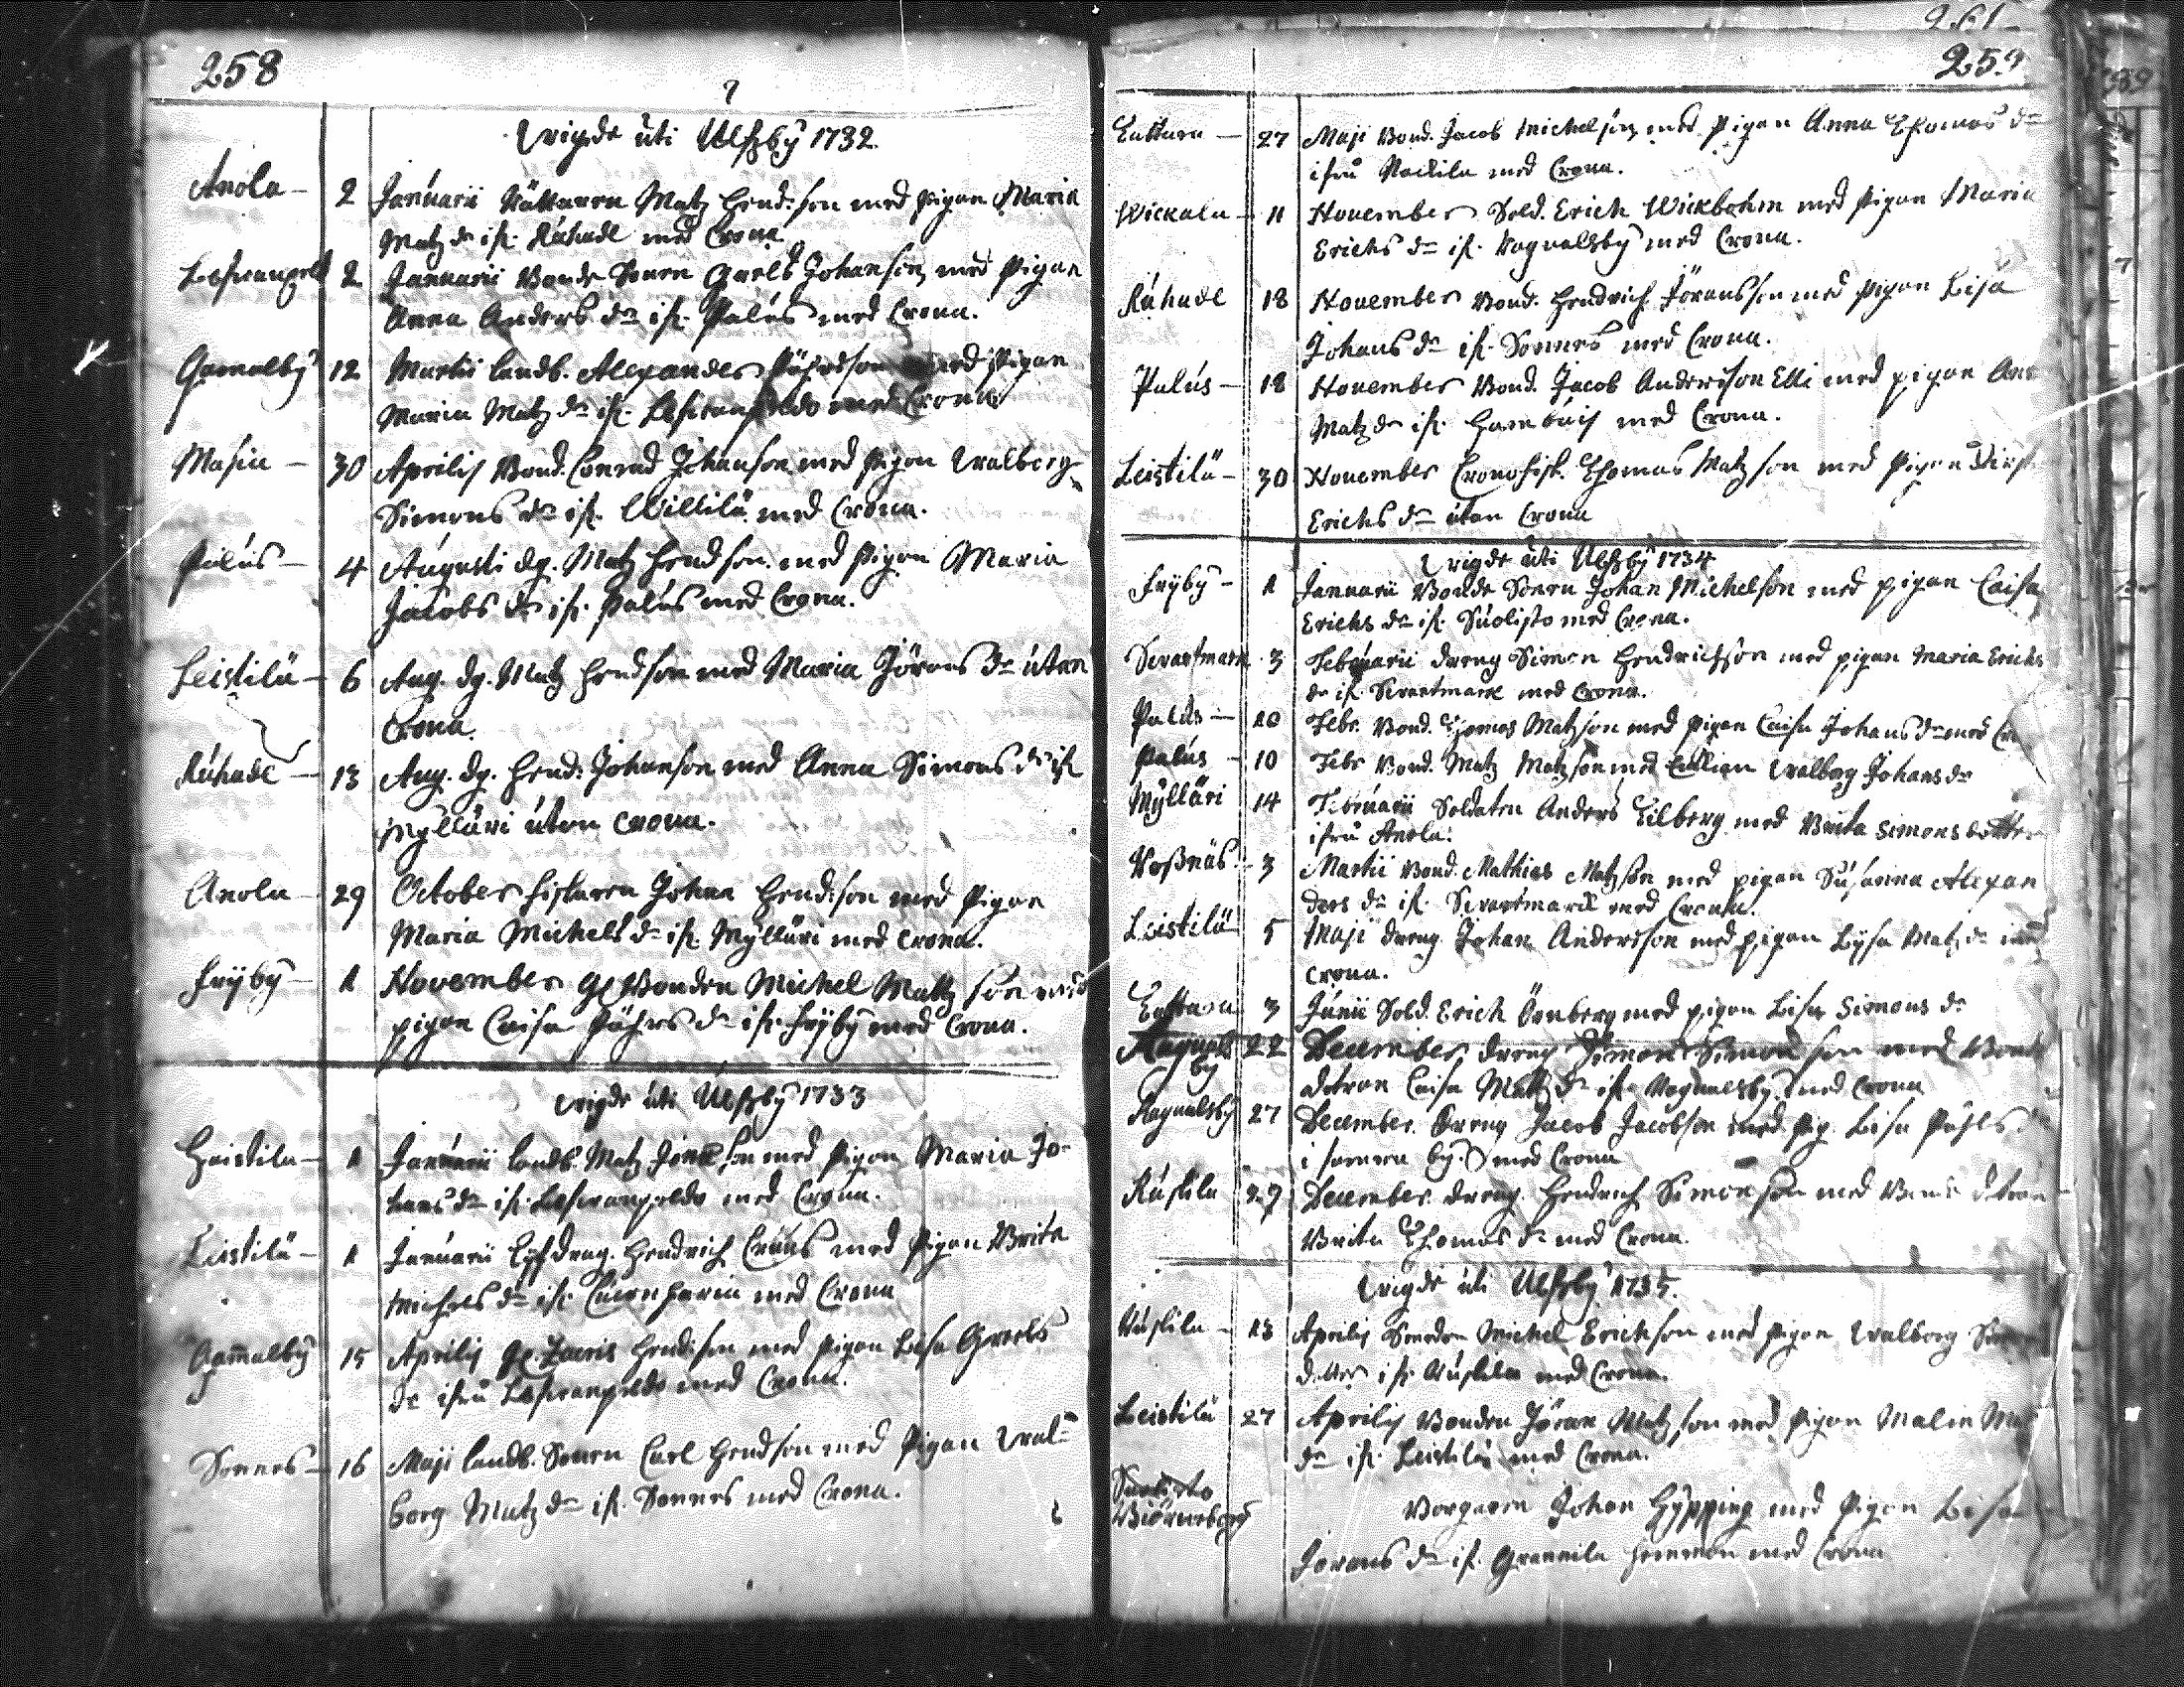 258
Wigde uti Ulfsby 1732.
Anola – 2 Januarii Rättaren Matz Hend:son med Pigan Maria
Matz dr ifr. Ruhade med Crona
2 Januarii Bonde Sonen Grels Johanson med Pigan
Anna Anders dr ifr. Palus med Crona.
Gamalby 12 Martii landb. Alexander Påhlson med Pigan
Maria Matz dr ifr. med Crona
Masia – 30 Aprilis Bond. Conrad Johanson med Pigan Walborg
Simons dr ifr. Willilä med Crona.
Palus – 4 Augusti dg. Matz Hendson med Pigan Maria
Jacobs dr ifr. Palus med Crona.
Leistilä – 6 Aug. dg. Matz Hendson med Maria Jörans dr utan
Crona.
Ruhade – 13 Aug. dg. Hend: Johanson med Anna Simons dr ifr
Mylläri utan Crona.
Anola – 29 October Fiskaren Johan Hendson med Pigan
Maria Michels dr ifr Mylläri med Crona.
Fryby – 1 November Gl Bonden Michel Mattz son med
pigan Caisa Påhls dr ifr. Fryby med Crona.
Wigde uti Ulfsby 1733
Haistila – 1 Januarii landb. Matz son med Pigan Maria Jo-
hans dr ifr. med Crona.
Leistilä – 1 Januarii Lyfdrag. Hendrich med Pigan Brita
Michels dr ifr. med Crona
Gam̄alby 15 Aprilis Gl. Hendson med Pigan Lisa Grels
dr ifrå med Crona.
Sonnes – 16 Maji landb. Sonen Carl Hendson med Pigan Wal=
borg Matz dr ifr. Sonnes med Crona.
261
259
Lattura – 27 Maji Bond. Jacob Michelson med Pigan Anna Thomas dr
ifrå med Crona.
Wickala – 11 November Sold. Erich Wickbohm med Pigan Maria
Erichs dr ifr. Ragnalsby med Crona.
Ruhade 18 November Bond. Hendrich Jöransson med Pigan Lisa
Johans dr ifr. Sonnes med Crona.
Palus – 18 November Bond. Jacob Anderson Elli med pigan
Matz dr ifr. Hambuis med Crona.
Leistilä – 30 November Thomas Matzson med Pigan
Erichs dr utan Crona
Wigde uti Ulfsby 1734
Fryby – 1 Januarii Bonde Sonen Johan Michelson med pigan Caisa
Erichs dr ifr. Suolisto med Crona.
Swartmark 3 Februarii dreng Simon Hendrichson med pigan Maria Erichs
dr ifr. Swartmark med Crona.
Palus – 10 Febr. Bond. Thomas Matzson med pigan Caisa Johans dr med
Palus – 10 Febr Bond. Matz Matzson med Walborg Johans dr
Mylläri 14 Februarii Soldaten Anders Lilberg med Brita Simons dotter
ifrå Anola.
Rosnäs – 3 Martii Bond. Mathias Matzson med pigan Susanna Alexan
ders dr ifr. Swartmark med Crona.
Leistilä 5 Maji dreng. Johan Andersson med pigan Lysa Matz dr med
Crona.
Lattura 3 Junii Sold. Erich Örnberg med pigan Lisa Simons dr
Ragnals
by 22 December dreng Simon Simonson med Bond
dotran Caisa Mattz dr ifr Ragnalsby med Crona
Ragnalsby 27 December. Dreng Jacob Jacobson med Pig. Lisa Påhls
i samma by. med Crona
Ruskila 27 December dreng. Hendrich Simonson med
Brita Thomas dr med Crona.
Wigde uti Ulfsby 1735.
Ruskila – 13 Aprilis Smeden Michel Erickson med Pigan Walborg
dotter ifr. Ruskila med Crona.
Leistilä 27 Aprilis Bonden Jöran Matzson med Pigan Malin
dr ifr. Leistilä med Crona.
Suolisto
Biörneborg Borgaren Johan Hypping med Pigan Lisa
Jörans dr ifr. Hemman med Crona